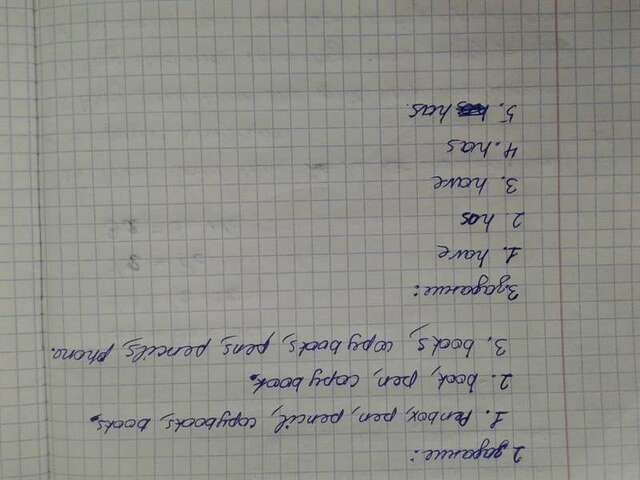 2 задание:
1. Penbox, pen, pencil, copybooks, books.
2. book, pen, copybook.
3. books, copybooks, pens, pencils, phone.
3 задание:
1. have
2 has
3. have
4. has
5. has